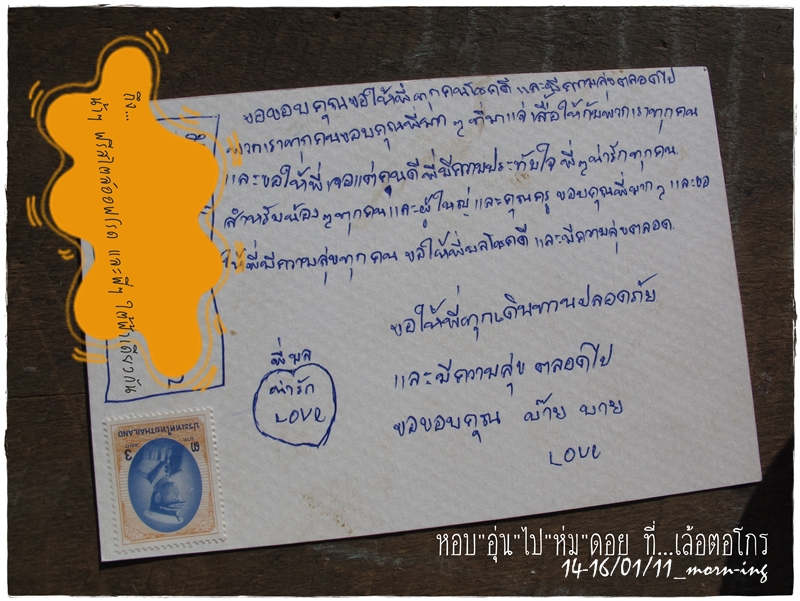 ขอขอบคุณขอให้พี่ทุกคนโชคดี และมีความสุขตลอดไป
พวกเราทุกคนขอบคุณพี่มาก ๆ ที่มาแจ่เสื้อให้กับพวกเราทุกคน
และขอให้พี่เจอแต่คนดีพี่มีความประทับใจ พี่ๆน่ารักทุกคน
สำหรับน้องๆทุกคนและผู้ใหญ่และคุณครู ขอบคุณพี่มากๆ และขอ
ให้พี่มีความสุขทุกคน ขอให้พี่พลโชคดี และมีความสุขตลอด
ขอให้พี่ทุกเดินทางปลอดภัย
และมีความสุข ตลอดไป
ขอขอบคุณ บ๊าย บาย
LOVE
พี่พล
น่ารัก
LOVE
ถึง...
น้าๆ ฟรีสไตล์ออฟโรด และพี่ๆ ใต้ฟ้าเดียวกัน
ประเทศไทย THAILAND
3
๓
หอบ"อุ่น"ไป"ห่ม"ดอย ที่...เล้อตอโกร
14-16/01/11_morn-ing